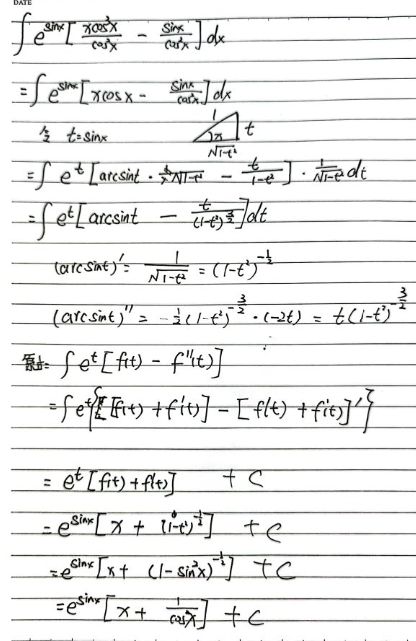 DATE
∫e^{sinx}[xcos³x/cos²x - sinx/cos²x]dx
=∫e^{sinx}[xcosx - sinx/cos²x]dx
令 t=sinx 1 x t √1-t²
=∫e^t[arcsint · √1-t² - t/(1-t²)] · 1/√1-t² dt
=∫e^t[arcsint - t/(1-t²)^{3/2}]dt
(arcsint)' = 1/√1-t² = (1-t²)^{-1/2}
(arcsint)'' = -1/2(1-t²)^{-3/2} · (-2t) = t(1-t²)^{-3/2}
原式= ∫e^t[f(t) - f''(t)]
=∫e^t{[f(t) + f'(t)] - [f(t) + f'(t)]'}
= e^t[f(t) + f'(t)] + C
= e^{sinx}[x + (1-t²)^{-1/2}] + C
= e^{sinx}[x + (1-sin²x)^{-1/2}] + C
= e^{sinx}[x + 1/cosx] + C